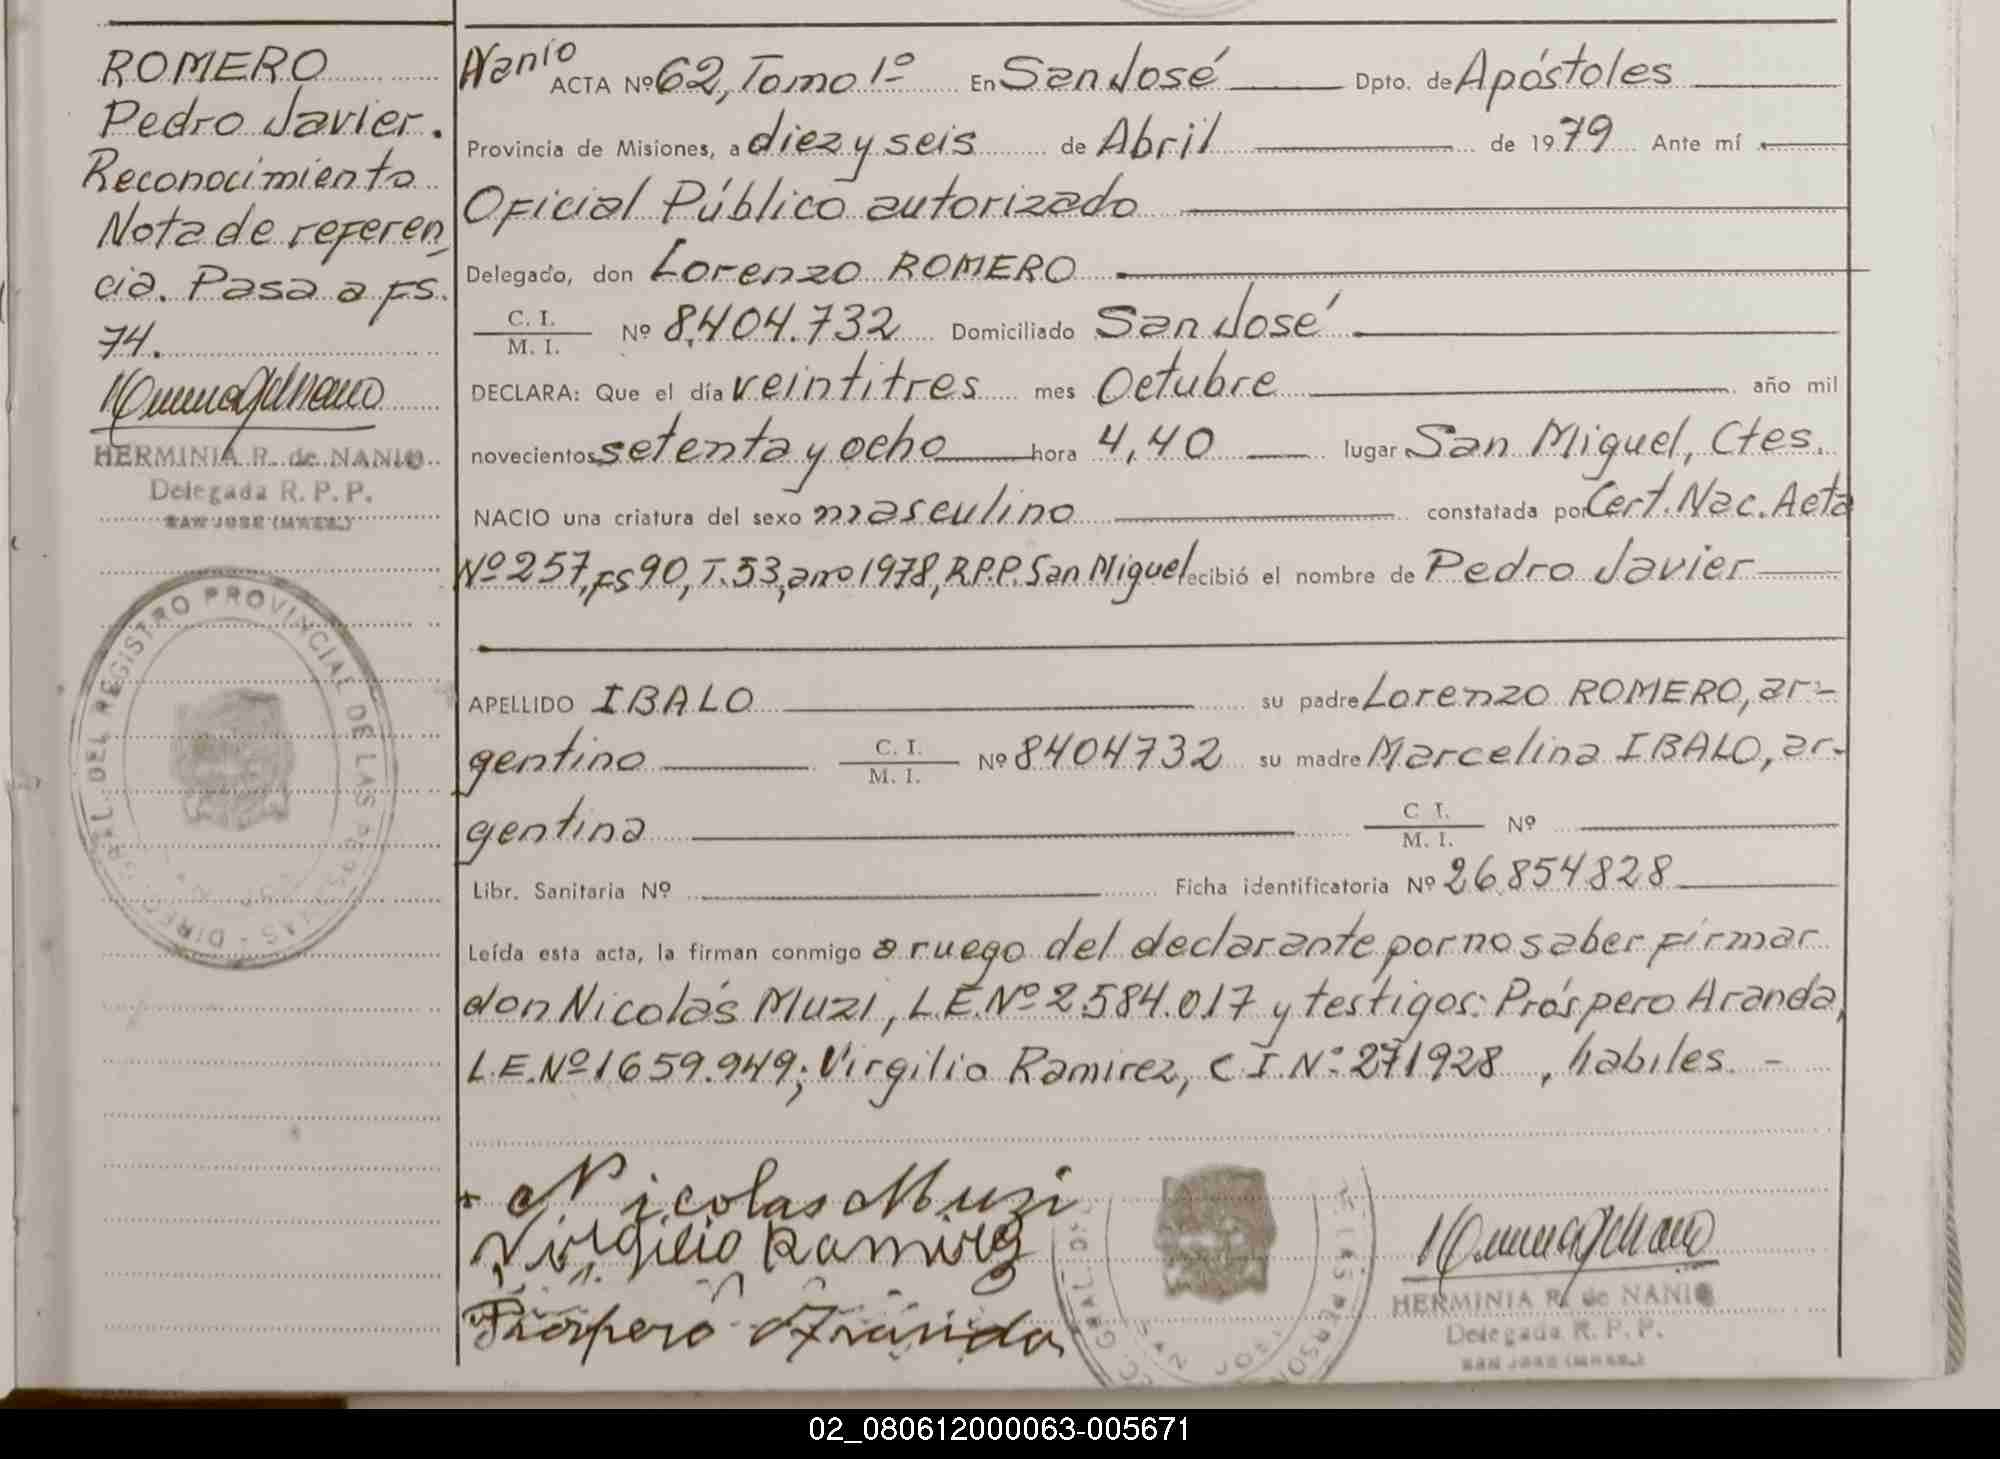 ROMERO
Pedro Javier.
Reconocimiento
Nota de referen
cia. Pasa a fs.
74.
HERMINIA R. de NANIO
Delegada R. P. P.
SAN JOSE (MNES.)
DIREC. GRAL. DEL REGISTRO PROVINCIAL DE LAS PERSONAS
Nanio
ACTA Nº 62, Tomo 1º En San José Dpto. de Apóstoles
Provincia de Misiones, a diez y seis de Abril de 1979 Ante mí
Oficial Público autorizado
Delegado, don Lorenzo ROMERO
C. I.
M. I. Nº 8.404.732 Domiciliado San José
DECLARA: Que el día veintitres mes Octubre año mil
novecientos setenta y ocho hora 4,40 lugar San Miguel, Ctes.
NACIO una criatura del sexo masculino constatada por Cert. Nac. Acta
Nº 257, fs 90, T. 53, año 1978, R.P.P. San Miguel recibió el nombre de Pedro Javier
APELLIDO IBALO su padre Lorenzo ROMERO, ar-
gentino C. I.
M. I. Nº 8404732 su madre Marcelina IBALO, ar-
gentina C. I.
M. I. Nº
Libr. Sanitaria Nº Ficha identificatoria Nº 26.854828
Leída esta acta, la firman conmigo a ruego del declarante por no saber firmar
don Nicolás MUZI, L.E. Nº 2.584.017 y testigos: Próspero Aranda,
L.E. Nº 1659.949; Virgilio Ramirez, C I. Nº 271928, habiles. -
Nicolas Muzi
Virgilio Ramirez
Prospero Aranda
SAN JOSE
HERMINIA R. de NANIO
Delegada R. P. P.
SAN JOSE (MNES.)
02_080612000063-005671